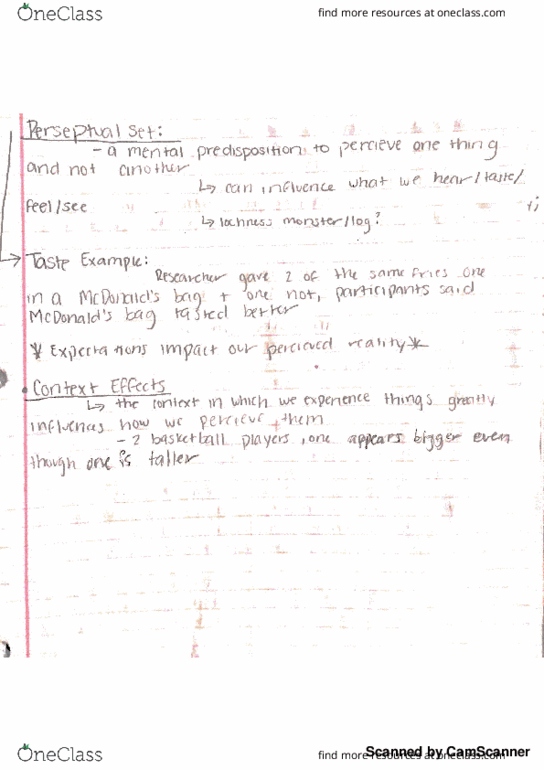 OneClass
find more resources at oneclass.com
Perseptual Set:
- a mental predisposition to percieve one thing
and not another
↳ can influence what we hear/taste/
feel/see
↳ lochness monster/log?
→ Taste Example:
Researcher gave 2 of the same fries one
in a McDonald's bag + one not, participants said
McDonald's bag tasted better
* Expectations impact our percieved reality *
• Context Effects
↳ the context in which we experience things greatly
influences how we percieve them
- 2 basketball players, one appears bigger even
though one is taller
OneClass
find more resources at oneclass.com
Scanned by CamScanner